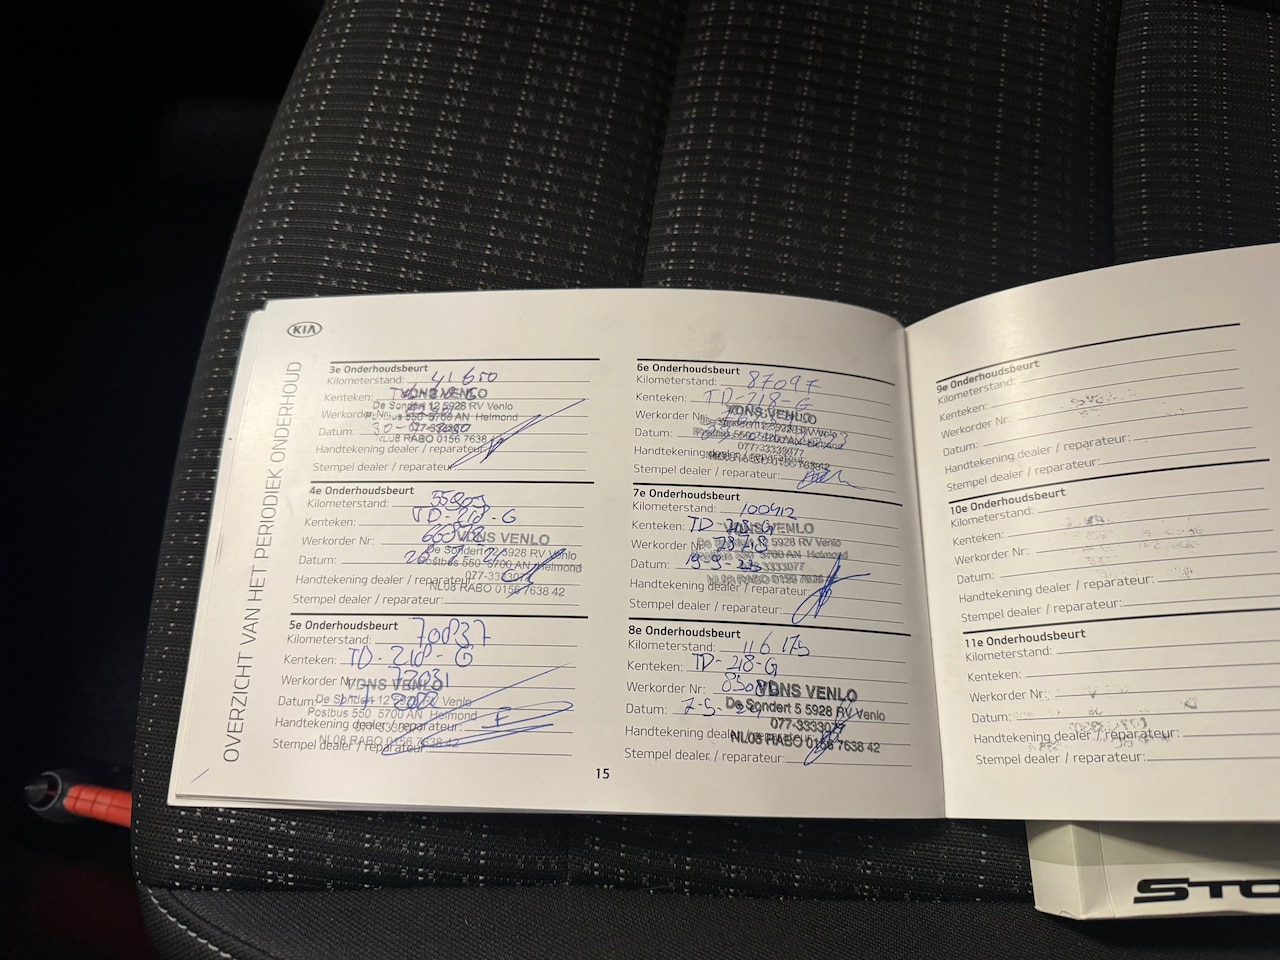 KIA
OVERZICHT VAN HET PERIODIEK ONDERHOUD
3e Onderhoudsbeurt
Kilometerstand: 41650
Kenteken:
VDNS VENLO
De Sondert 12 5928 RV Venlo
Werkorder Nr:
Postbus 550 5700 AN Helmond
Datum: 30-
NL08 RABO 0156 7638 42
Handtekening dealer / reparateur:
Stempel dealer / reparateur:
4e Onderhoudsbeurt
Kilometerstand:
Kenteken: TD-218-G
Werkorder Nr:
VDNS VENLO
De Sondert 12 5928 RV Venlo
Datum:
Postbus 550 5700 AN Helmond
Handtekening dealer / reparateur:
NL08 RABO 0156 7638 42
Stempel dealer / reparateur:
5e Onderhoudsbeurt
Kilometerstand: 70837
Kenteken: TD-218-G
Werkorder Nr: 72031
VDNS VENLO
Datum:
De Sondert 12 5928 RV Venlo
Postbus 550 5700 AN Helmond
Handtekening dealer / reparateur:
NL08 RABO 0156 7638 42
Stempel dealer / reparateur:
6e Onderhoudsbeurt
Kilometerstand: 87097
Kenteken: TD-218-G
Werkorder Nr:
VDNS VENLO
Datum:
077-3333077
Handtekening dealer / reparateur:
Stempel dealer / reparateur:
7e Onderhoudsbeurt
Kilometerstand: 100412
Kenteken: TD-218-G
VDNS VENLO
Werkorder Nr:
De Sondert 5 5928 RV Venlo
Datum: 19-9-23
Postbus 550 5700 AN Helmond
Handtekening dealer / reparateur:
NL08 RABO 0156 7638 42
Stempel dealer / reparateur:
8e Onderhoudsbeurt
Kilometerstand: 116175
Kenteken: TD-218-G
Werkorder Nr:
VDNS VENLO
Datum: 7-5-24
De Sondert 5 5928 RV Venlo
Handtekening dealer / reparateur:
NL08 RABO 0156 7638 42
Stempel dealer / reparateur:
15
9e Onderhoudsbeurt
Kilometerstand:
Kenteken:
Werkorder Nr:
Datum:
Handtekening dealer / reparateur:
Stempel dealer / reparateur:
10e Onderhoudsbeurt
Kilometerstand:
Kenteken:
Werkorder Nr:
Datum:
Handtekening dealer / reparateur:
Stempel dealer / reparateur:
11e Onderhoudsbeurt
Kilometerstand:
Kenteken:
Werkorder Nr:
Datum:
Handtekening dealer / reparateur:
Stempel dealer / reparateur: